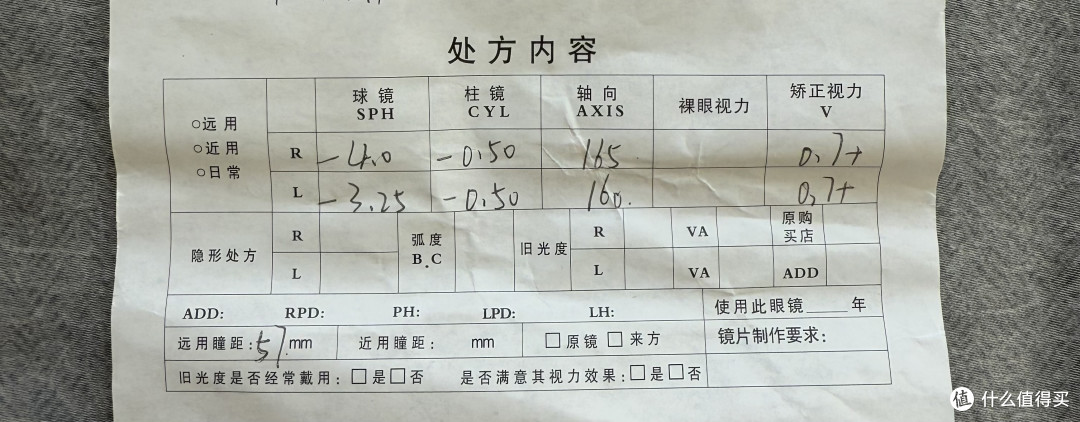 处方内容
○远用
○近用
○日常
球镜 SPH 柱镜 CYL 轴向 AXIS 裸眼视力 矫正视力 V
R -4.0 -0.50 165 0.7+
L -3.25 -0.50 160. 0.7+
隐形处方 R 弧度 B.C 旧光度 R VA 原购买店
L L VA ADD
ADD: RPD: PH: LPD: LH: 使用此眼镜____年
远用瞳距:57mm 近用瞳距: mm □原镜 □来方 镜片制作要求:
旧光度是否经常戴用:□是□否 是否满意其视力效果:□是□否
值 什么值得买